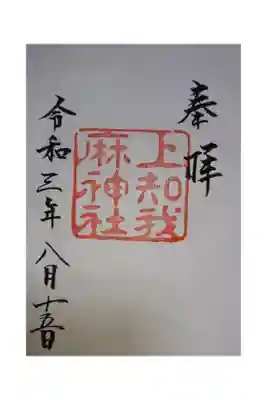 奉拝
上知我
麻神社
令和三年八月十五日